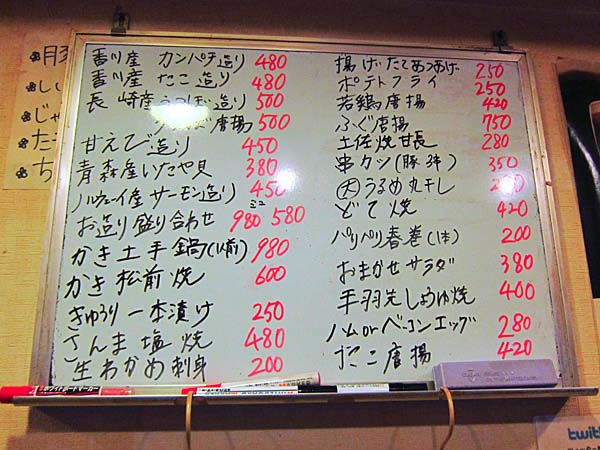 香川産 カンパチ造り 480
香川産 たこ造り 480
長崎産うつぼ造り 500
うつぼ唐揚 500
甘えび造り 450
青森産いたや貝 380
ノルウェイ産サーモン造り 450
お造り盛り合わせ 980 ミニ 580
かき土手鍋(1人前) 980
かき松前焼 600
きゅうり一本漬け 250
さんま塩焼 480
生わかめ刺身 200
揚げたてあつあげ 250
ポテトフライ 250
若鶏唐揚 420
ふぐ唐揚 750
土佐焼甘長 280
串カツ(豚3本) 350
大 うるめ丸干し
どて焼 420
パリパリ春巻(1本) 200
おまかせサラダ 380
手羽先しょうゆ焼 400
ハムorベーコンエッグ 280
たこ唐揚 420
豚
しい
じゃ
た
ち
twit